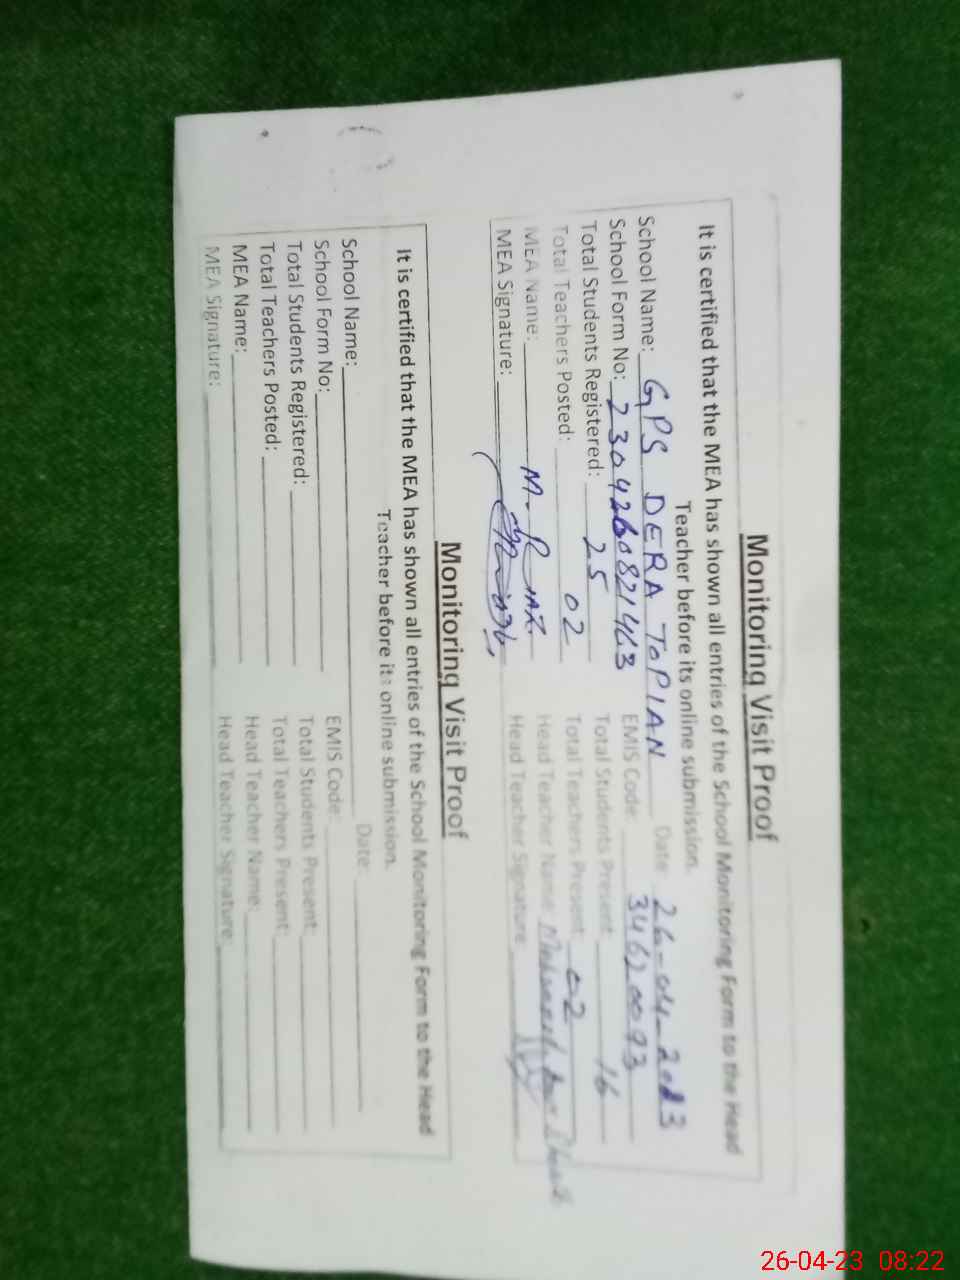 Monitoring Visit Proof
It is certified that the MEA has shown all entries of the School Monitoring Form to the Head
Teacher before its online submission.
School Name: GPS DERA TOPIAN Date: 26-04-2023
School Form No: 2304260821463 EMIS Code: 34620093
Total Students Registered: 25 Total Students Present: 16
Total Teachers Posted: 02 Total Teachers Present: 02
MEA Name: M. Head Teacher Name:
MEA Signature: Head Teacher Signature
Monitoring Visit Proof
It is certified that the MEA has shown all entries of the School Monitoring Form to the Head
Teacher before its online submission.
School Name: Date:
School Form No: EMIS Code:
Total Students Registered: Total Students Present:
Total Teachers Posted: Total Teachers Present:
MEA Name: Head Teacher Name:
MEA Signature: Head Teacher Signature:
26-04-23 08:22